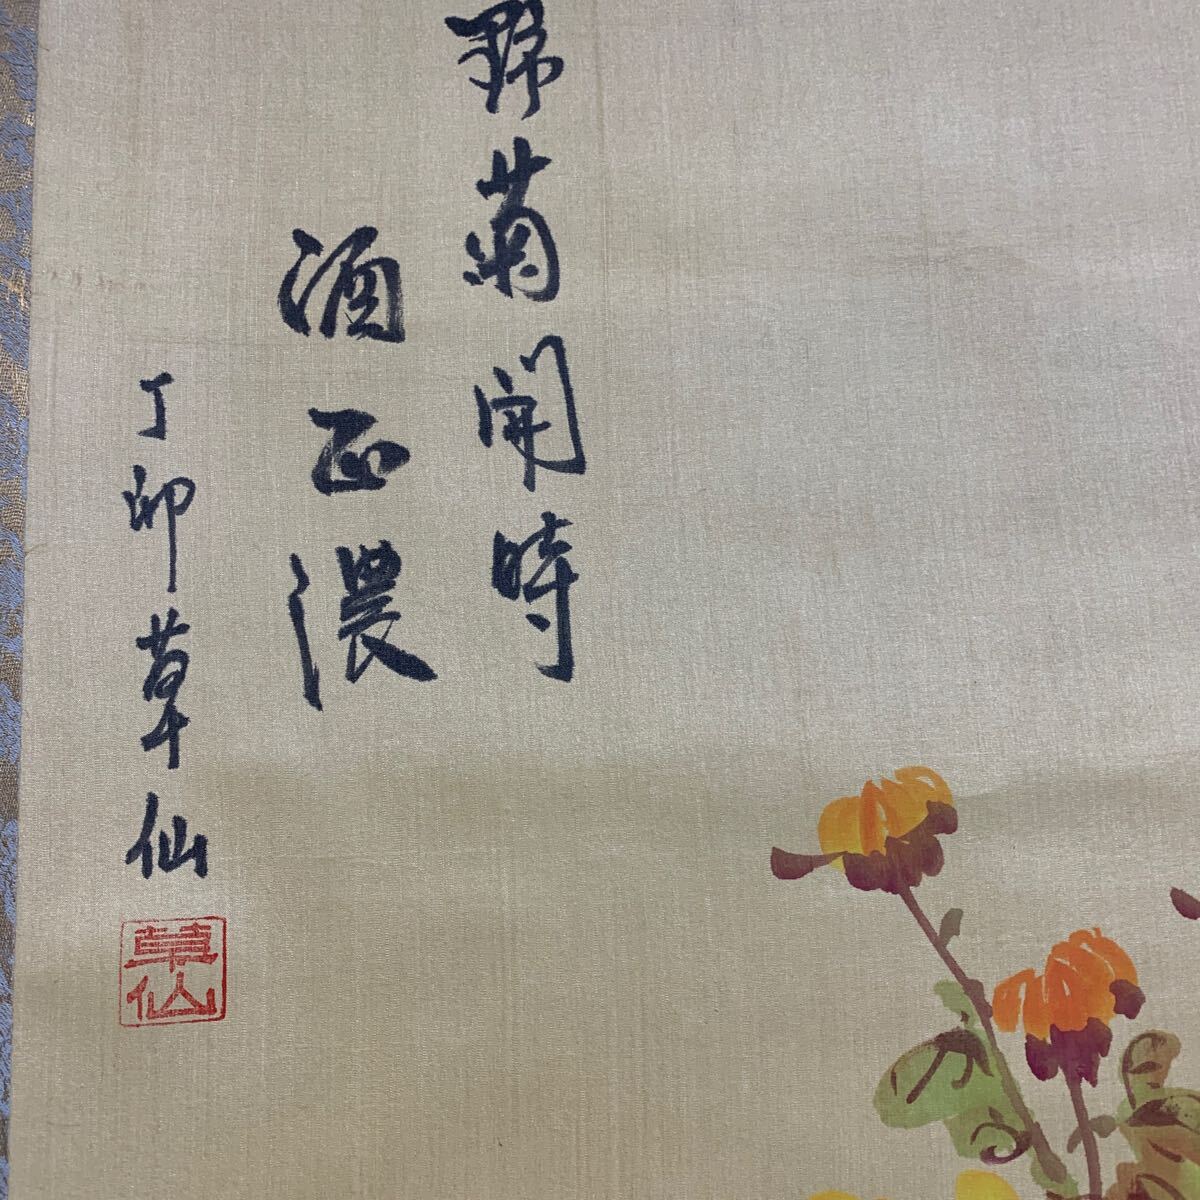 野菊開時
酒正濃
丁卯草仙
草仙